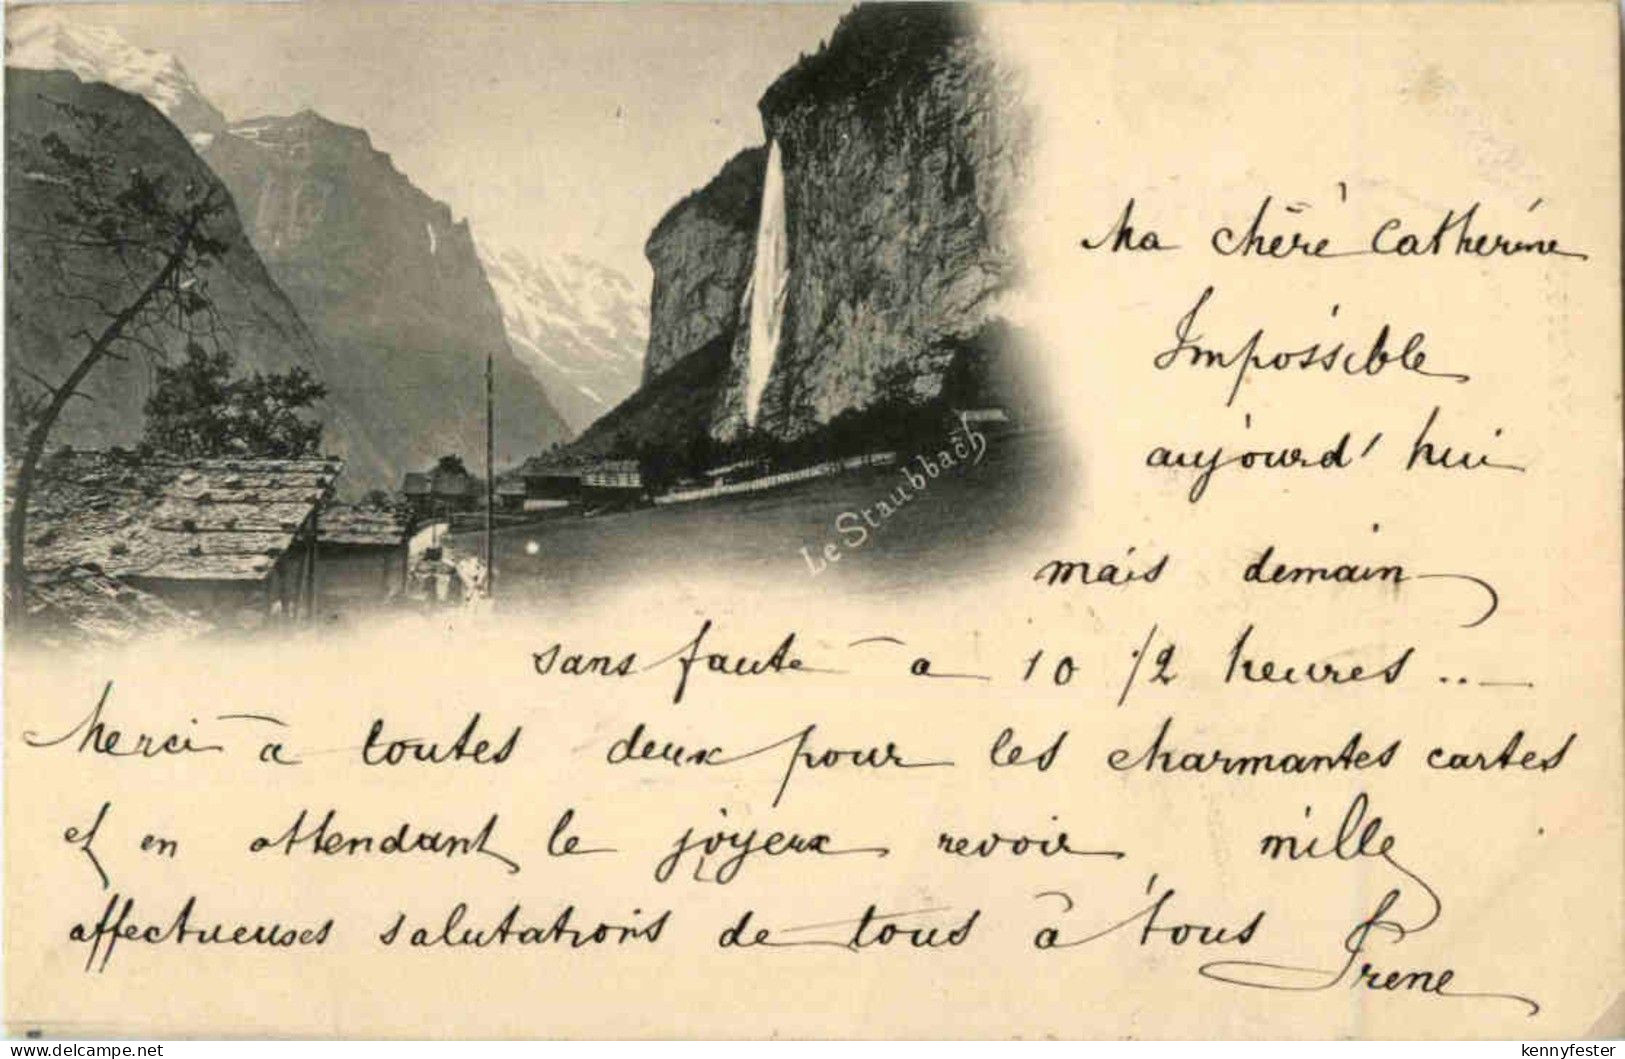 Le Staubbach
Ma chère Catherine
Impossible
aujourd'hui
mais demain
sans faute à 10 1/2 heures ..
Merci à toutes deux pour les charmantes cartes
et en attendant le joyeux revoir mille
affectueuses salutations de tous à tous
Irene
delcampe.net
kennyfester